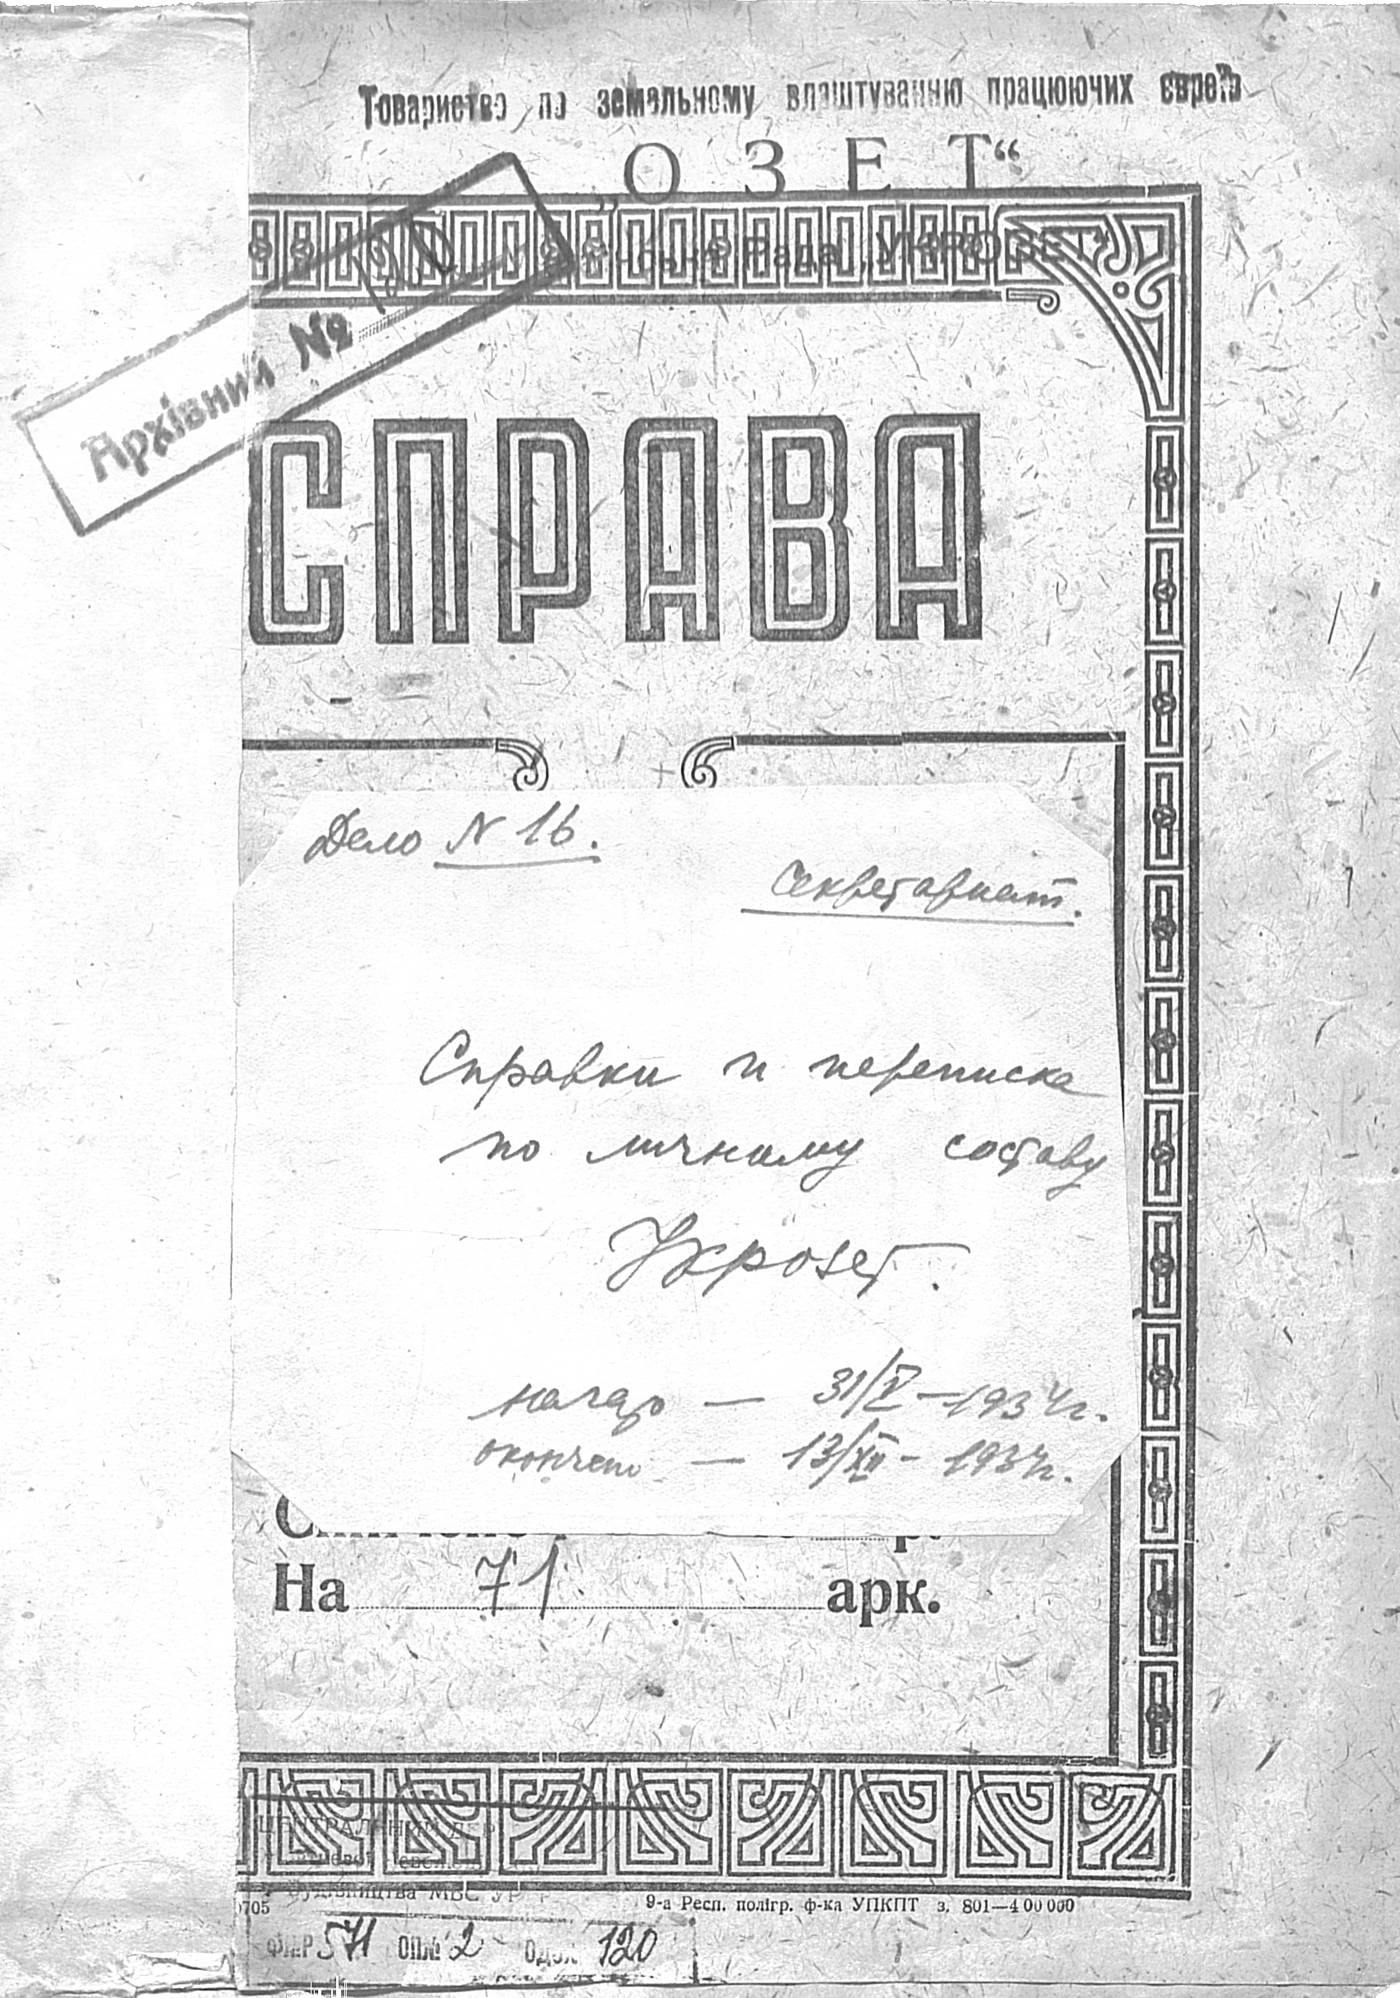 Товариство по земельному влаштуванню працюючих євреїв
„ОЗЕТ“
Рада „УКРОЗЕТ“
Архівний №
СПРАВА
Дело N 16.
Секретариат.
Справки и переписка
по личному составу
Укрозет.
начато — 31/V – 1934 г.
окончено — 13/XII – 1934 г.
На 71 арк.
ЦЕНТРАЛЬНИЙ ДЕР
будівництва МВС УР
9-а Респ. полігр. ф-ка УПКПТ з. 801—400 000
705
ФОНД 571 ОПИС 2 ОД.ЗБ. 120